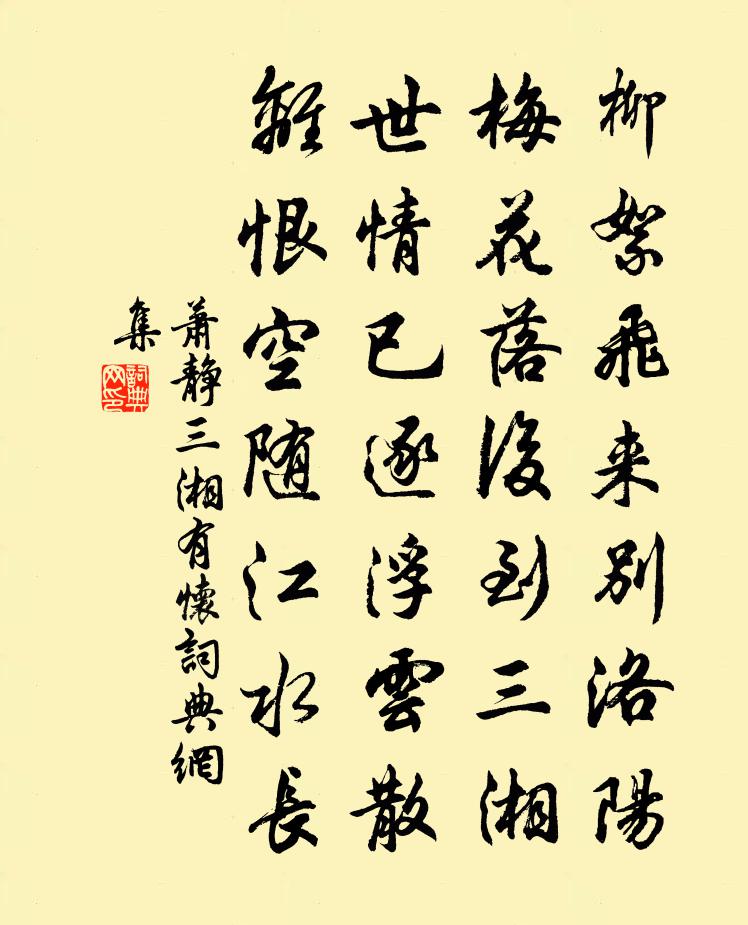 柳絮飛来別洛陽
梅花落後到三湘
世情已逐浮雲散
離恨空随江水長
蕭静三湘有懷詞典網
集
詞典
网印